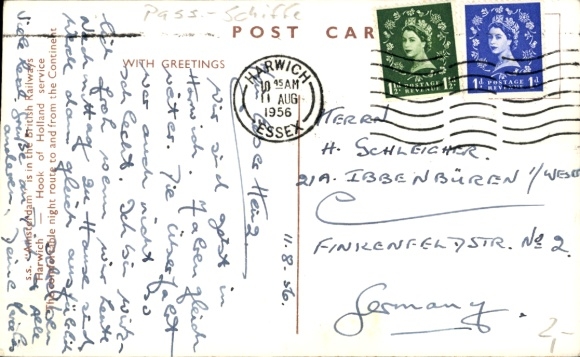 Pass.-Schiffe
POST CAR
WITH GREETINGS
HARWICH
10 45 AM
11 AUG
1956
ESSEX
1½D POSTAGE REVENUE 1½D
1D POSTAGE REVENUE 1D
s.s. Amsterdam is in the British Railways
Harwich — Hook of Holland service
The comfortable night route to and from the Continent
11.8.56.
Heinz
Wir sind jetzt in
Harwich. Fahren gleich
weiter. Die Überfahrt
war auch nicht so
schlecht. Ich bin wirk-
lich froh wenn wir heute
Nachmittag zu Hause sind
dann gleich ausführlich
Viele
HERRN
H. SCHLEICHER.
21A. IBBENBÜREN I/WESTF
FINKENFELDSTR. No 2.
Germany.
2,-